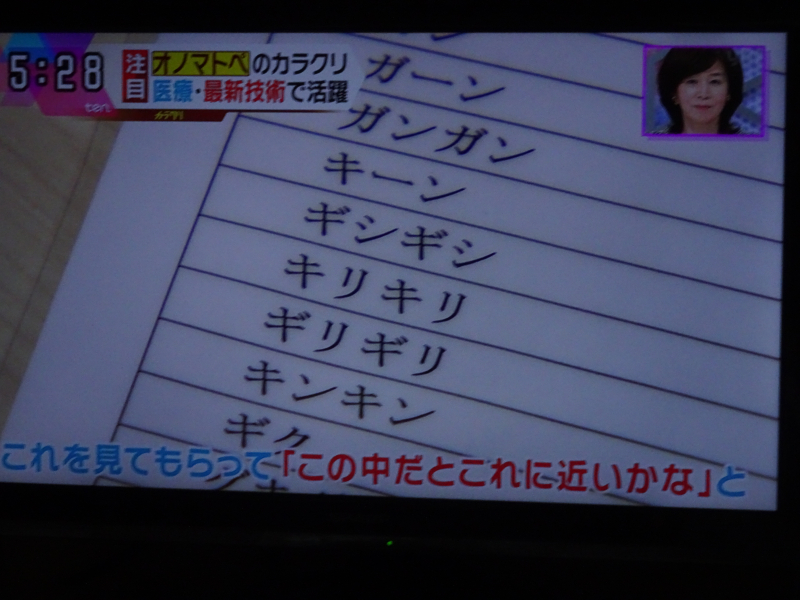 5:28
注目
オノマトペのカラクリ
医療・最新技術で活躍
ten.
カラクリ
ガーン
ガンガン
キーン
ギシギシ
キリキリ
ギリギリ
キンキン
ギク
これを見てもらって「この中だとこれに近いかな」と